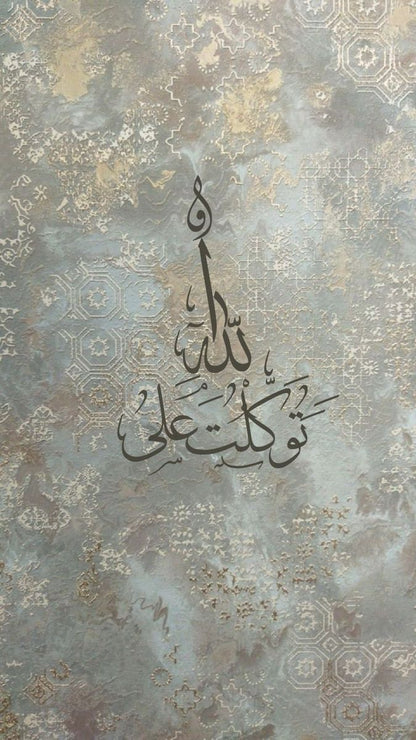 و
تَوَكَّلْتُ عَلَى
اللّٰه